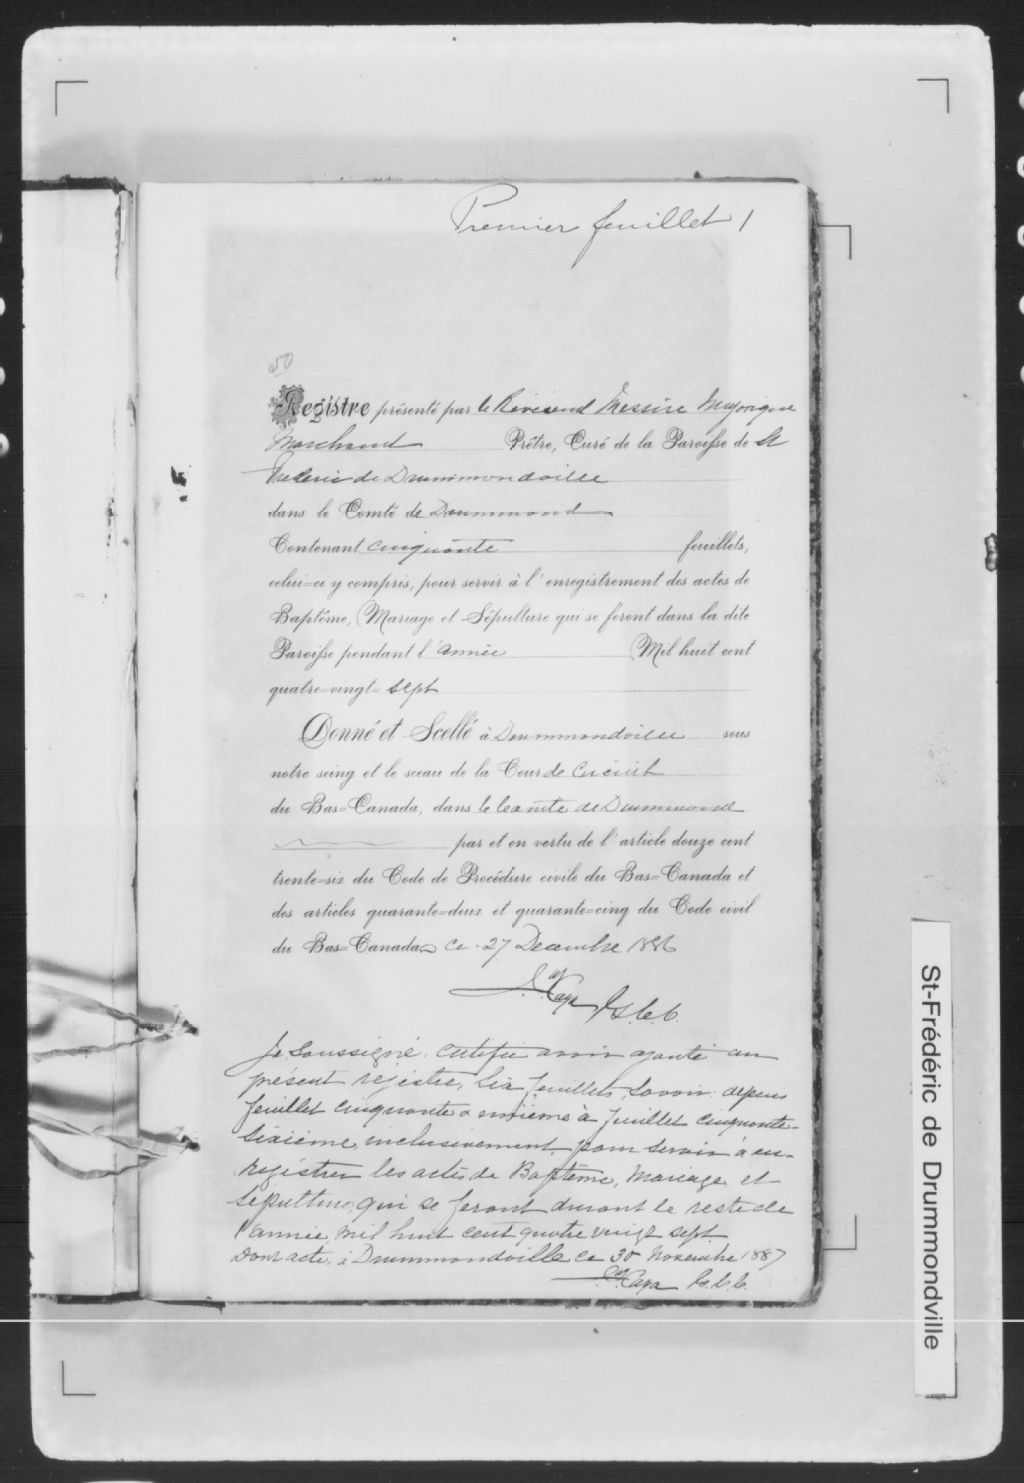 Premier feuillet 1
50
Registre présenté par le Révérend Messire Majorique
Marchand Prêtre, Curé de la Paroisse de St
Frederic de Drummondville
dans le Comté de Drummond
Contenant cinquante feuillets,
celui=ci y compris, pour servir à l'enregistrement des actes de
Baptême, Mariage et Sépulture qui se feront dans la dite
Paroisse pendant l'année Mil huit cent
quatre=vingt= sept
Donné et Scellé à Drummondville sous
notre seing et le sceau de la Cour de Circuit
du Bas=Canada, dans le Comté de Drummond
par et en vertu de l'article douze cent
trente=six du Code de Procédure civile du Bas=Canada et
des articles quarante=deux et quarante=cinq du Code civil
du Bas=Canada ce 27 Decembre 1886
Je Soussigné, certifie avoir ajouté au
présent régistre, six feuillets, savoir: depuis
feuillet cinquante & unième à feuillet cinquante-
sixième, inclusivement, pour servir à en-
régistrer les actes de Baptême, Mariage et
Sepulture, qui se feront durant le reste de
l'année mil huit cent quatre vingt sept.
Dont acte, à Drummondville ce 30 Novembre 1887
St-Frédéric de Drummondville